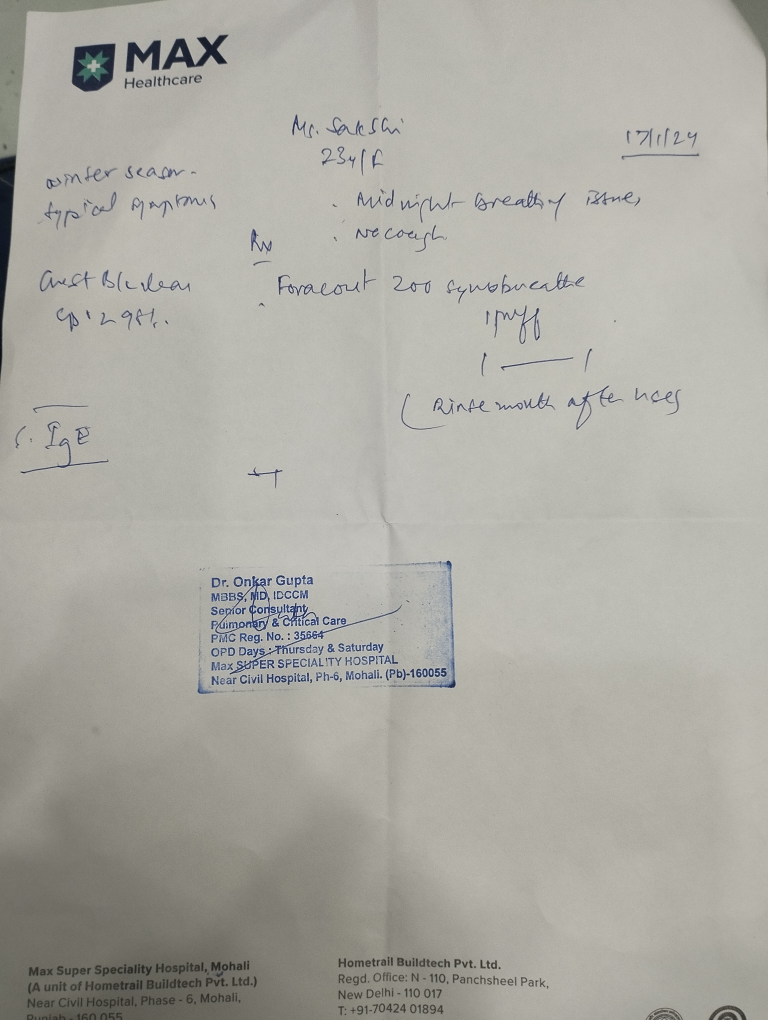 MAX
Healthcare
Ms. Sakshi
17/1/24
23y/F
winter season -
typical symptoms
. Midnight breathing issues
. No cough
Rx
Chest B/L clear
. Foracort 200 synchrobreathe
98%.
1 puff
1 — 1
( Rinse mouth after uses
S. IgE
Dr. Onkar Gupta
MBBS, MD, IDCCM
Senior Consultant
Pulmonary & Critical Care
PMC Reg. No. : 35664
OPD Days : Thursday & Saturday
Max SUPER SPECIALITY HOSPITAL
Near Civil Hospital, Ph-6, Mohali. (Pb)-160055
Max Super Speciality Hospital, Mohali
(A unit of Hometrail Buildtech Pvt. Ltd.)
Near Civil Hospital, Phase - 6, Mohali,
Punjab - 160 055
Hometrail Buildtech Pvt. Ltd.
Regd. Office: N - 110, Panchsheel Park,
New Delhi - 110 017
T: +91-70424 01894